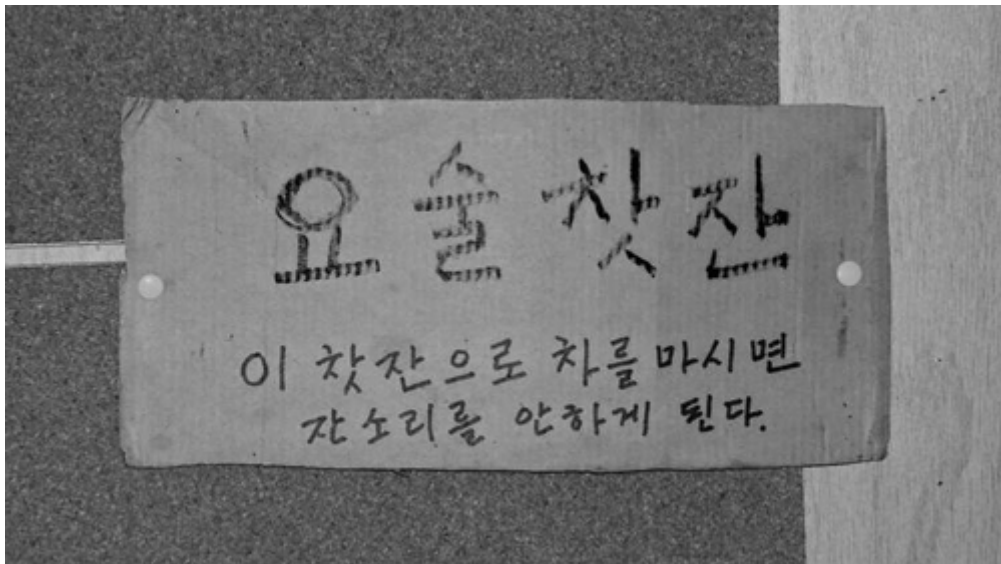 요술찻잔
이 찻잔으로 차를 마시면
잔소리를 안하게 된다.